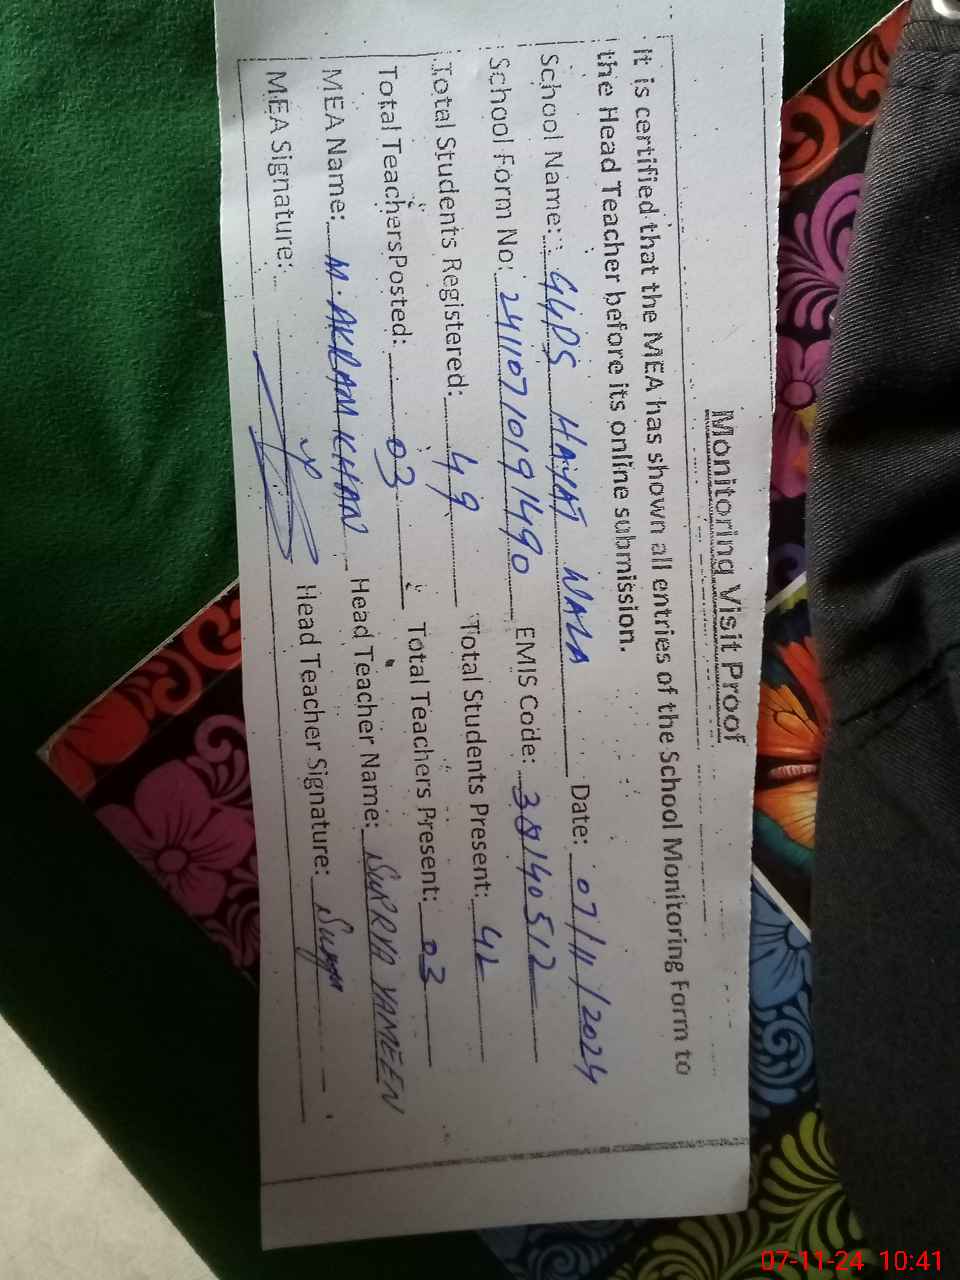 Monitoring Visit Proof
It is certified that the MEA has shown all entries of the School Monitoring Form to
the Head Teacher before its online submission.
School Name: GGPS HAYAT WALA Date: 07/11/2024
School Form No: 24110710191490 EMIS Code: 38140512
Total Students Registered: 49 Total Students Present: 42
Total TeachersPosted: 03 Total Teachers Present: 03
MEA Name: M. AKRAM KHAN Head Teacher Name: SURRYA YAMEEN
MEA Signature: Head Teacher Signature:
07-11-24 10:41